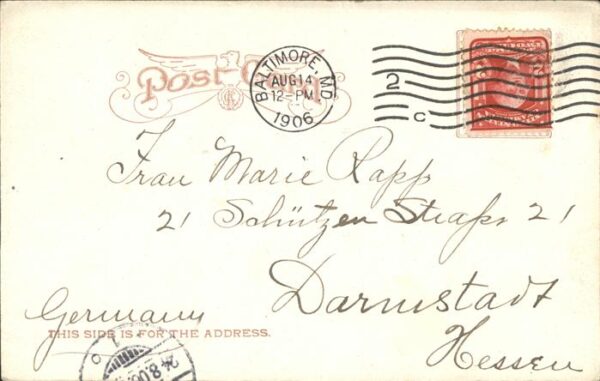 Post Card
BALTIMORE, MD.
AUG 14
12-PM
1906
2
C
Frau Marie Rapp
21 Schützen Straße 21
Darmstadt
Germany
Hessen
THIS SIDE IS FOR THE ADDRESS.
24.8.06